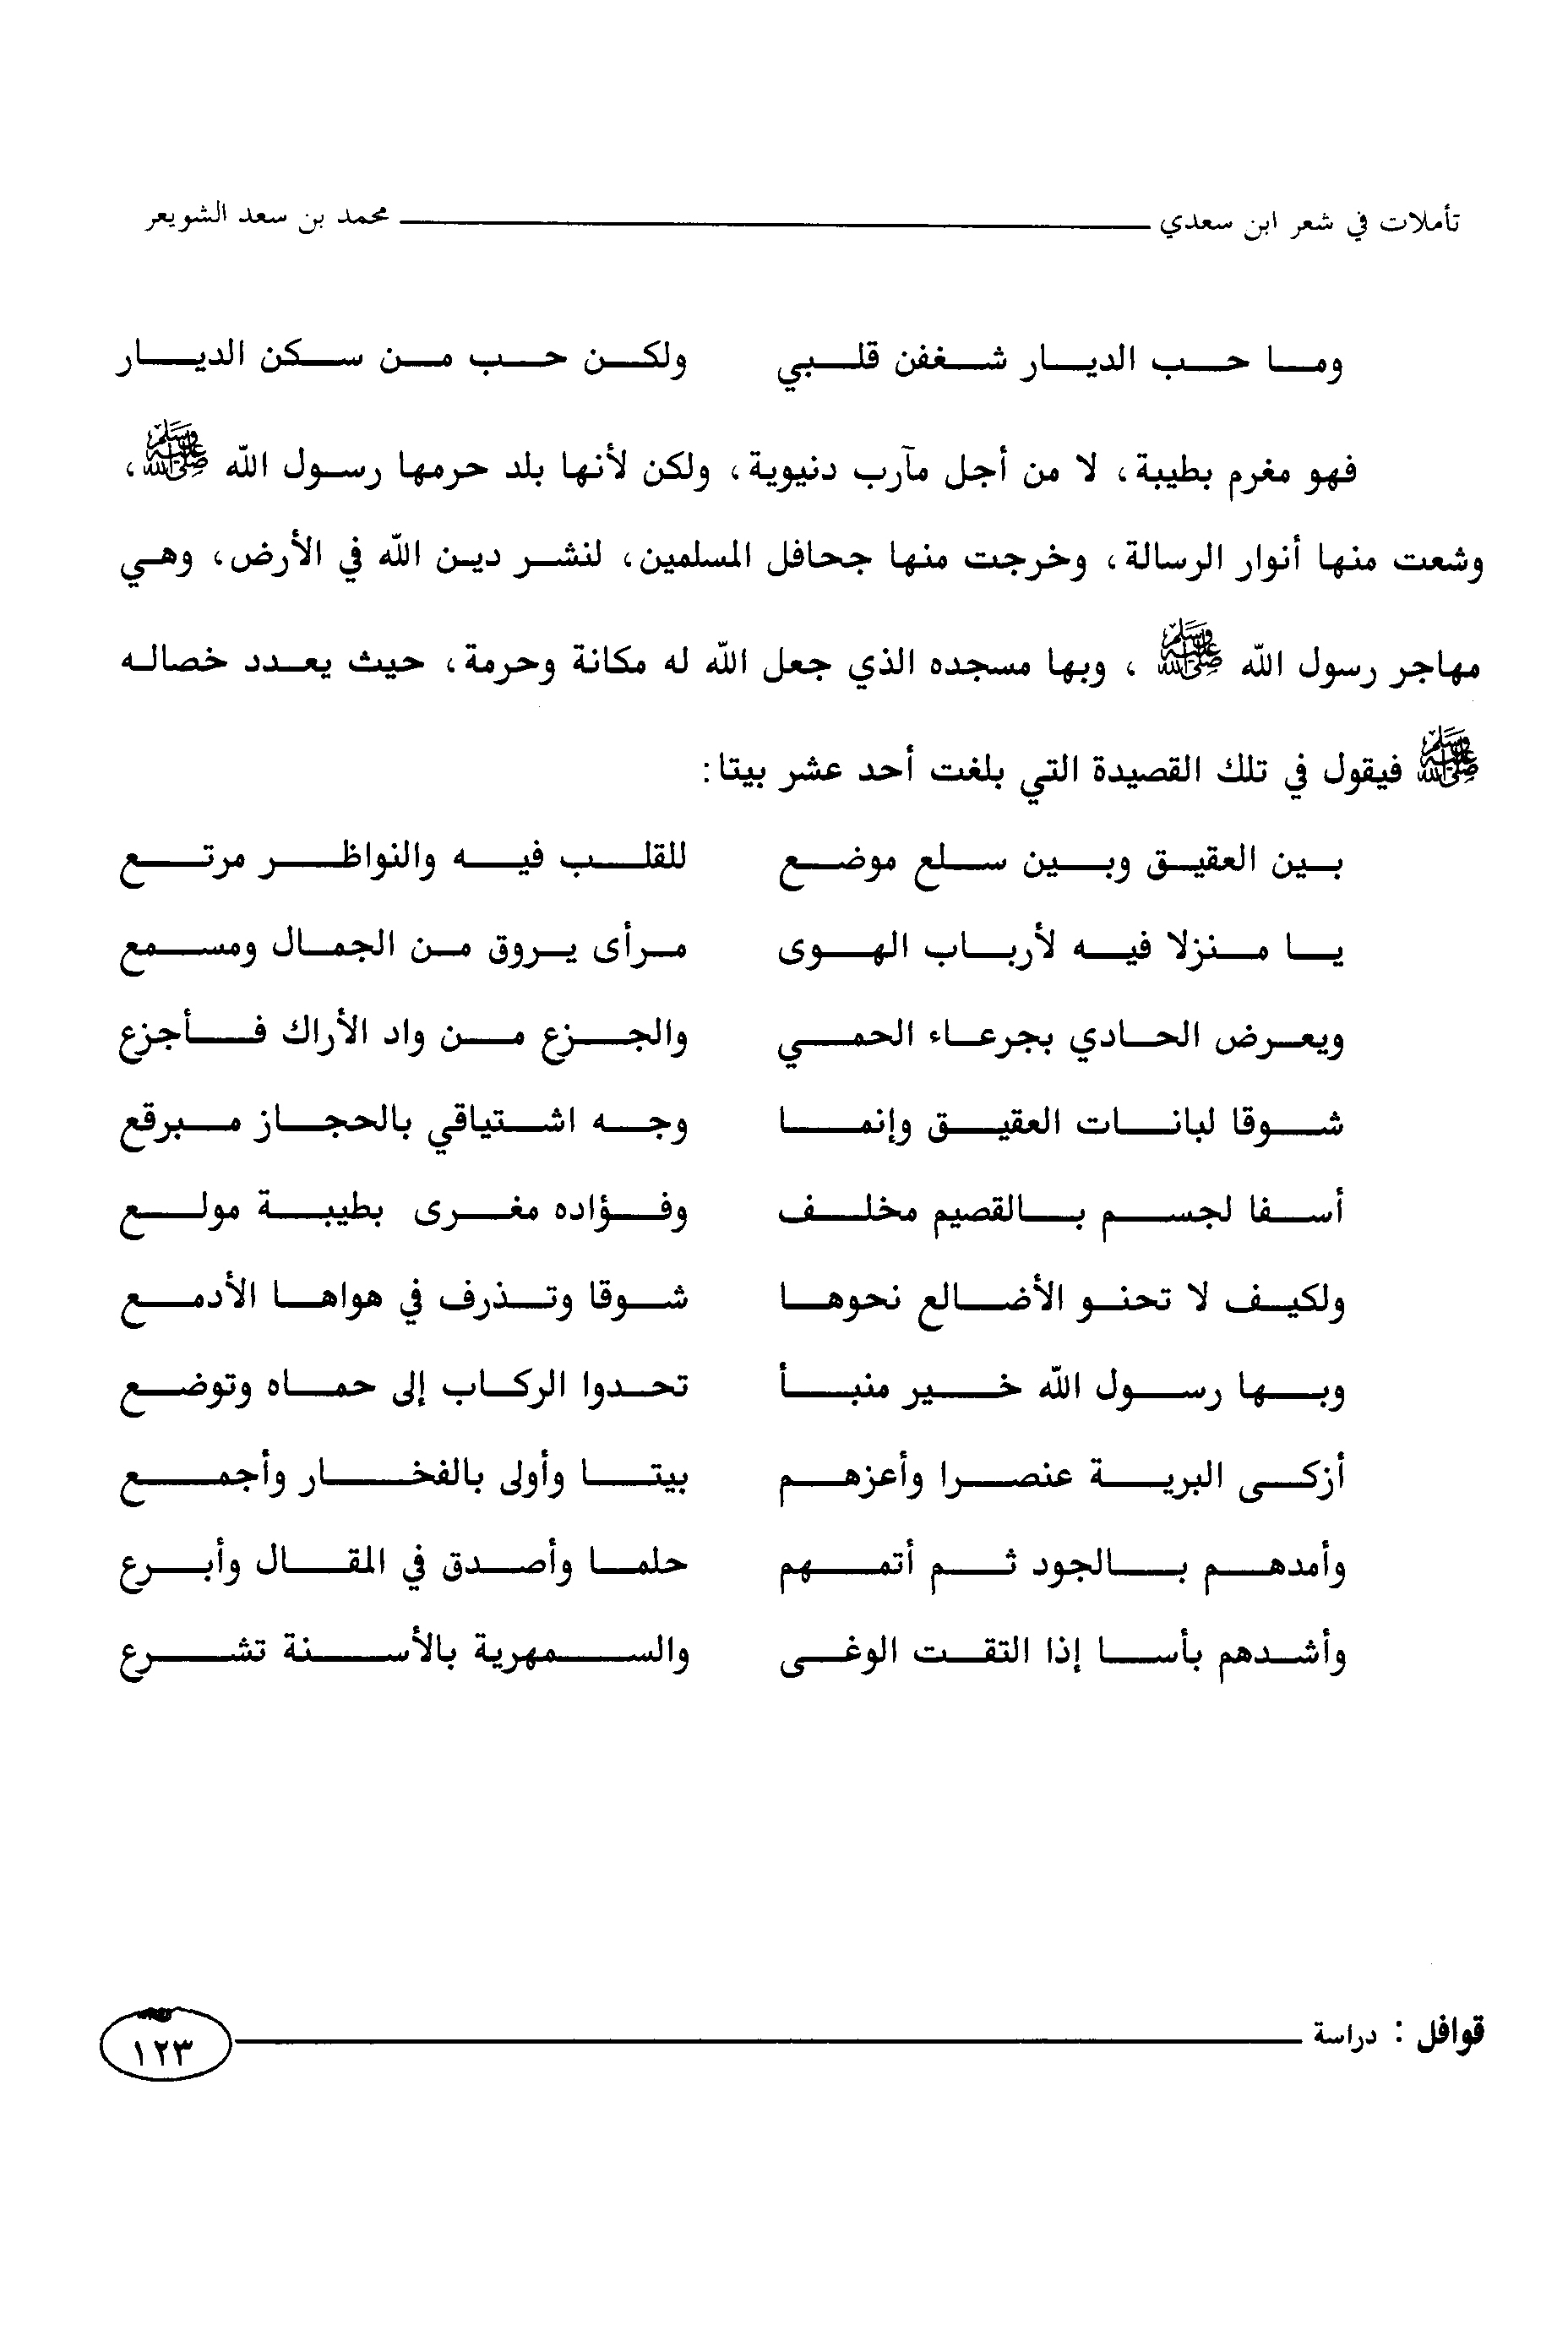 تأملات في شعر ابن سعدي محمد بن سعد الشويعر
وما حب الديار شغفن قلبي ولكن حب من سكن الديار
فهو مغرم بطيبة، لا من أجل مآرب دنيوية، ولكن لأنها بلد حرمها رسول الله ﷺ،
وشعت منها أنوار الرسالة، وخرجت منها جحافل المسلمين، لنشر دين الله في الأرض، وهي
مهاجر رسول الله ﷺ، وبها مسجده الذي جعل الله له مكانة وحرمة، حيث يعدد خصاله
ﷺ فيقول في تلك القصيدة التي بلغت أحد عشر بيتا:
بين العقيق وبين سلع موضع للقلب فيه والنواظر مرتع
يا منزلا فيه لأرباب الهوى مرأى يروق من الجمال ومسمع
ويعرض الحادي بجرعاء الحمي والجزع من واد الأراك فأجزع
شوقا لبانات العقيق وإنما وجه اشتياقي بالحجاز مبرقع
أسفا لجسم بالقصيم مخلف وفؤاده مغرى بطيبة مولع
ولكيف لا تحنو الأضالع نحوها شوقا وتذرف في هواها الأدمع
وبها رسول الله خير منبأ تحدوا الركاب إلى حماه وتوضع
أزكى البرية عنصرا وأعزهم بيتا وأولى بالفخار وأجمع
وأمدهم بالجود ثم أتمهم حلما وأصدق في المقال وأبرع
وأشدهم بأسا إذا التقت الوغى والسمهرية بالأسنة تشرع
قوافل : دراسة ١٢٣